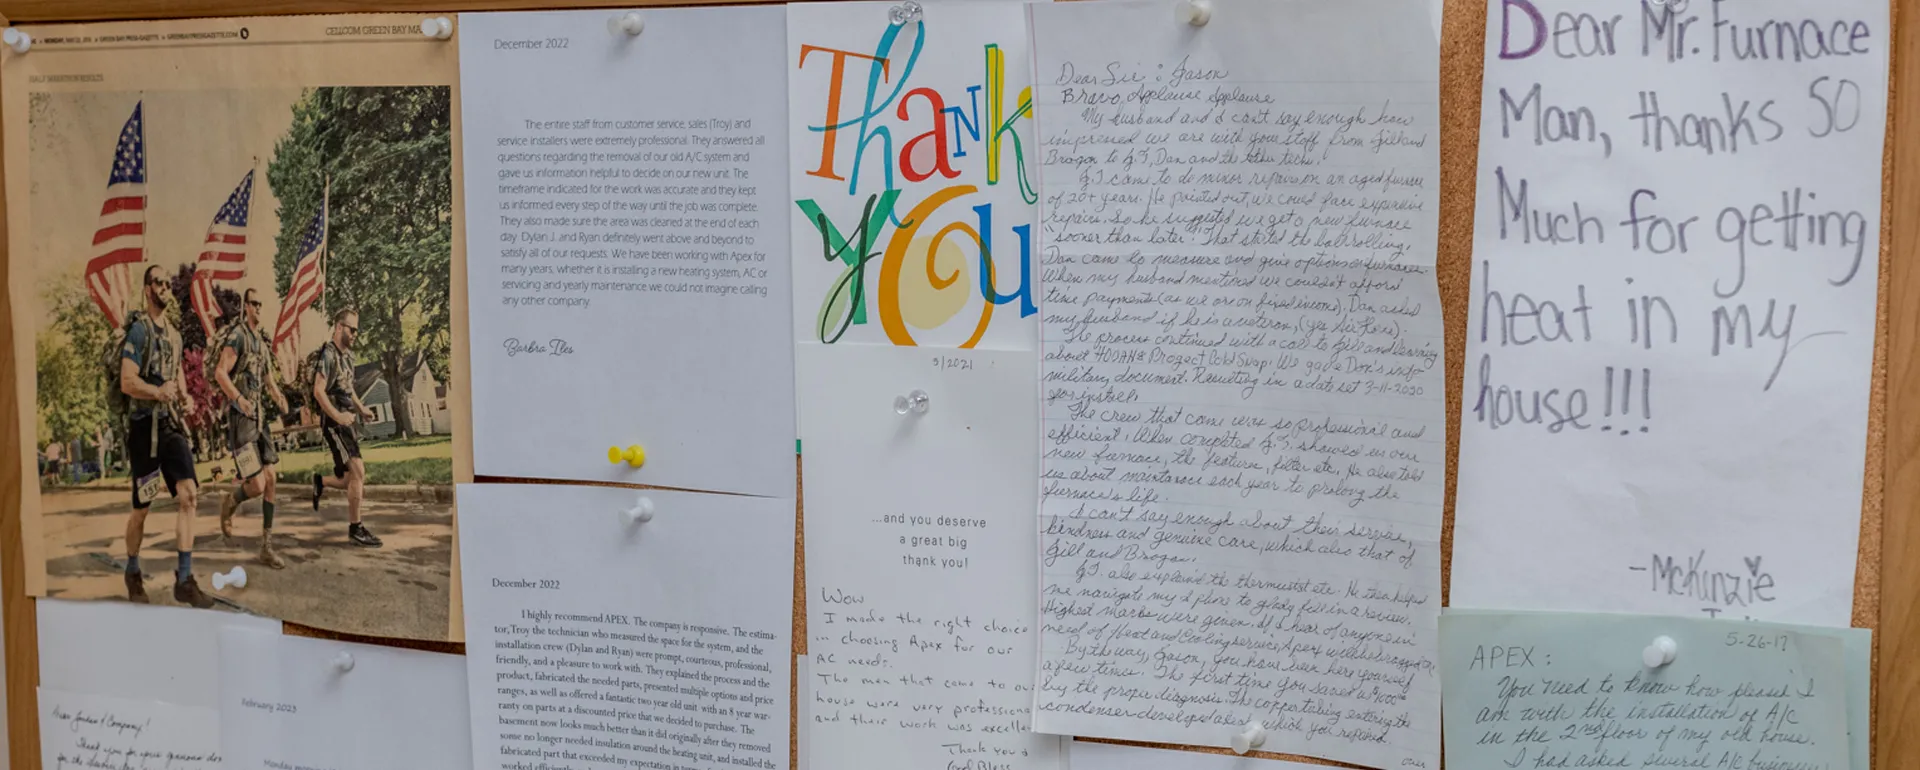 GREEN BAY PRESS-GAZETTE
GREENBAYPRESSGAZETTE.COM
CELLCOM GREEN BAY MA
HALF MARATHON RESULTS
December 2022
The entire staff from customer service, sales (Troy) and
service installers were extremely professional. They answered all
questions regarding the removal of our old A/C system and
gave us information helpful to decide on our new unit. The
timeframe indicated for the work was accurate and they kept
us informed every step of the way until the job was complete.
They also made sure the area was cleaned at the end of each
day. Dylan J. and Ryan definitely went above and beyond to
satisfy all of our requests. We have been working with Apex for
many years, whether it is installing a new heating system, AC or
servicing and yearly maintenance we could not imagine calling
any other company.
Barbra Iles
December 2022
I highly recommend APEX. The company is responsive. The estima-
tor, Troy the technician who measured the space for the system, and the
installation crew (Dylan and Ryan) were prompt, courteous, professional,
friendly, and a pleasure to work with. They explained the process and the
product, fabricated the needed parts, presented multiple options and price
ranges, as well as offered a fantastic two year old unit with an 8 year war-
ranty on parts at a discounted price that we decided to purchase. The
basement now looks much better than it did originally after they removed
some no longer needed insulation around the heating unit, and installed the
fabricated part that exceeded my expectation in
worked efficiently
February 2023
Dear Jordan & Company!
Thank you for your
Thank
You
9/2021
...and you deserve
a great big
thank you!
Wow
I made the right choice
in choosing Apex for our
AC needs.
The men that came to our
house were very professiona
and their work was excelle
Thank you &
God Bless
Dear Sir: Jason
Bravo, Applause Applause
My husband and I can't say enough how
impressed we are with your staff. From Gill and
Brogan to G.T, Dan and the other techs.
G.T came to do minor repairs on an aged furnace
of 20+ years. He pointed out, we could face expensive
repairs. So he suggested we get a new furnace
"sooner than later". That started the ball rolling.
Dan came to measure and give options on furnaces.
When my husband mentioned we couldn't afford
time payments (as we are on fixed income), Dan asked
my husband if he is a veteran, (yes Air Force).
The process continued with a call to Gill and learning
about HOOAH & Project Cold Swap. We gave Don's info
military document. Resulting in a date set 3-11-2020
for install.
The crew that came was so professional and
efficient. When completed G.T. showed us our
new furnace, the feature, filter etc. He also told
us about maintance each year to prolong the
furnace's life.
I can't say enough about their service,
kindness and genuine care, which also that of
Gill and Brogan.
G.T. also explain the thermostst etc. He then helped
me navigate my I phone to gladly fill in a review.
Highest marks were given. If I hear of anyone in
need of Heat and Cooling service, Apex will be bragged on.
By the way, Jason, you have been here yourself
a few times. The first time you saved us
by the proper diagnosis. The copper tubing entering the
condenser developed a leak which you repaired.
over
Dear Mr. Furnace
Man, thanks SO
Much for getting
heat in my
house!!!
-McKinzie
5-26-17
APEX:
You need to know how pleased I
am with the installation of A/C
in the 2nd floor of my old house.
I had asked several A/C